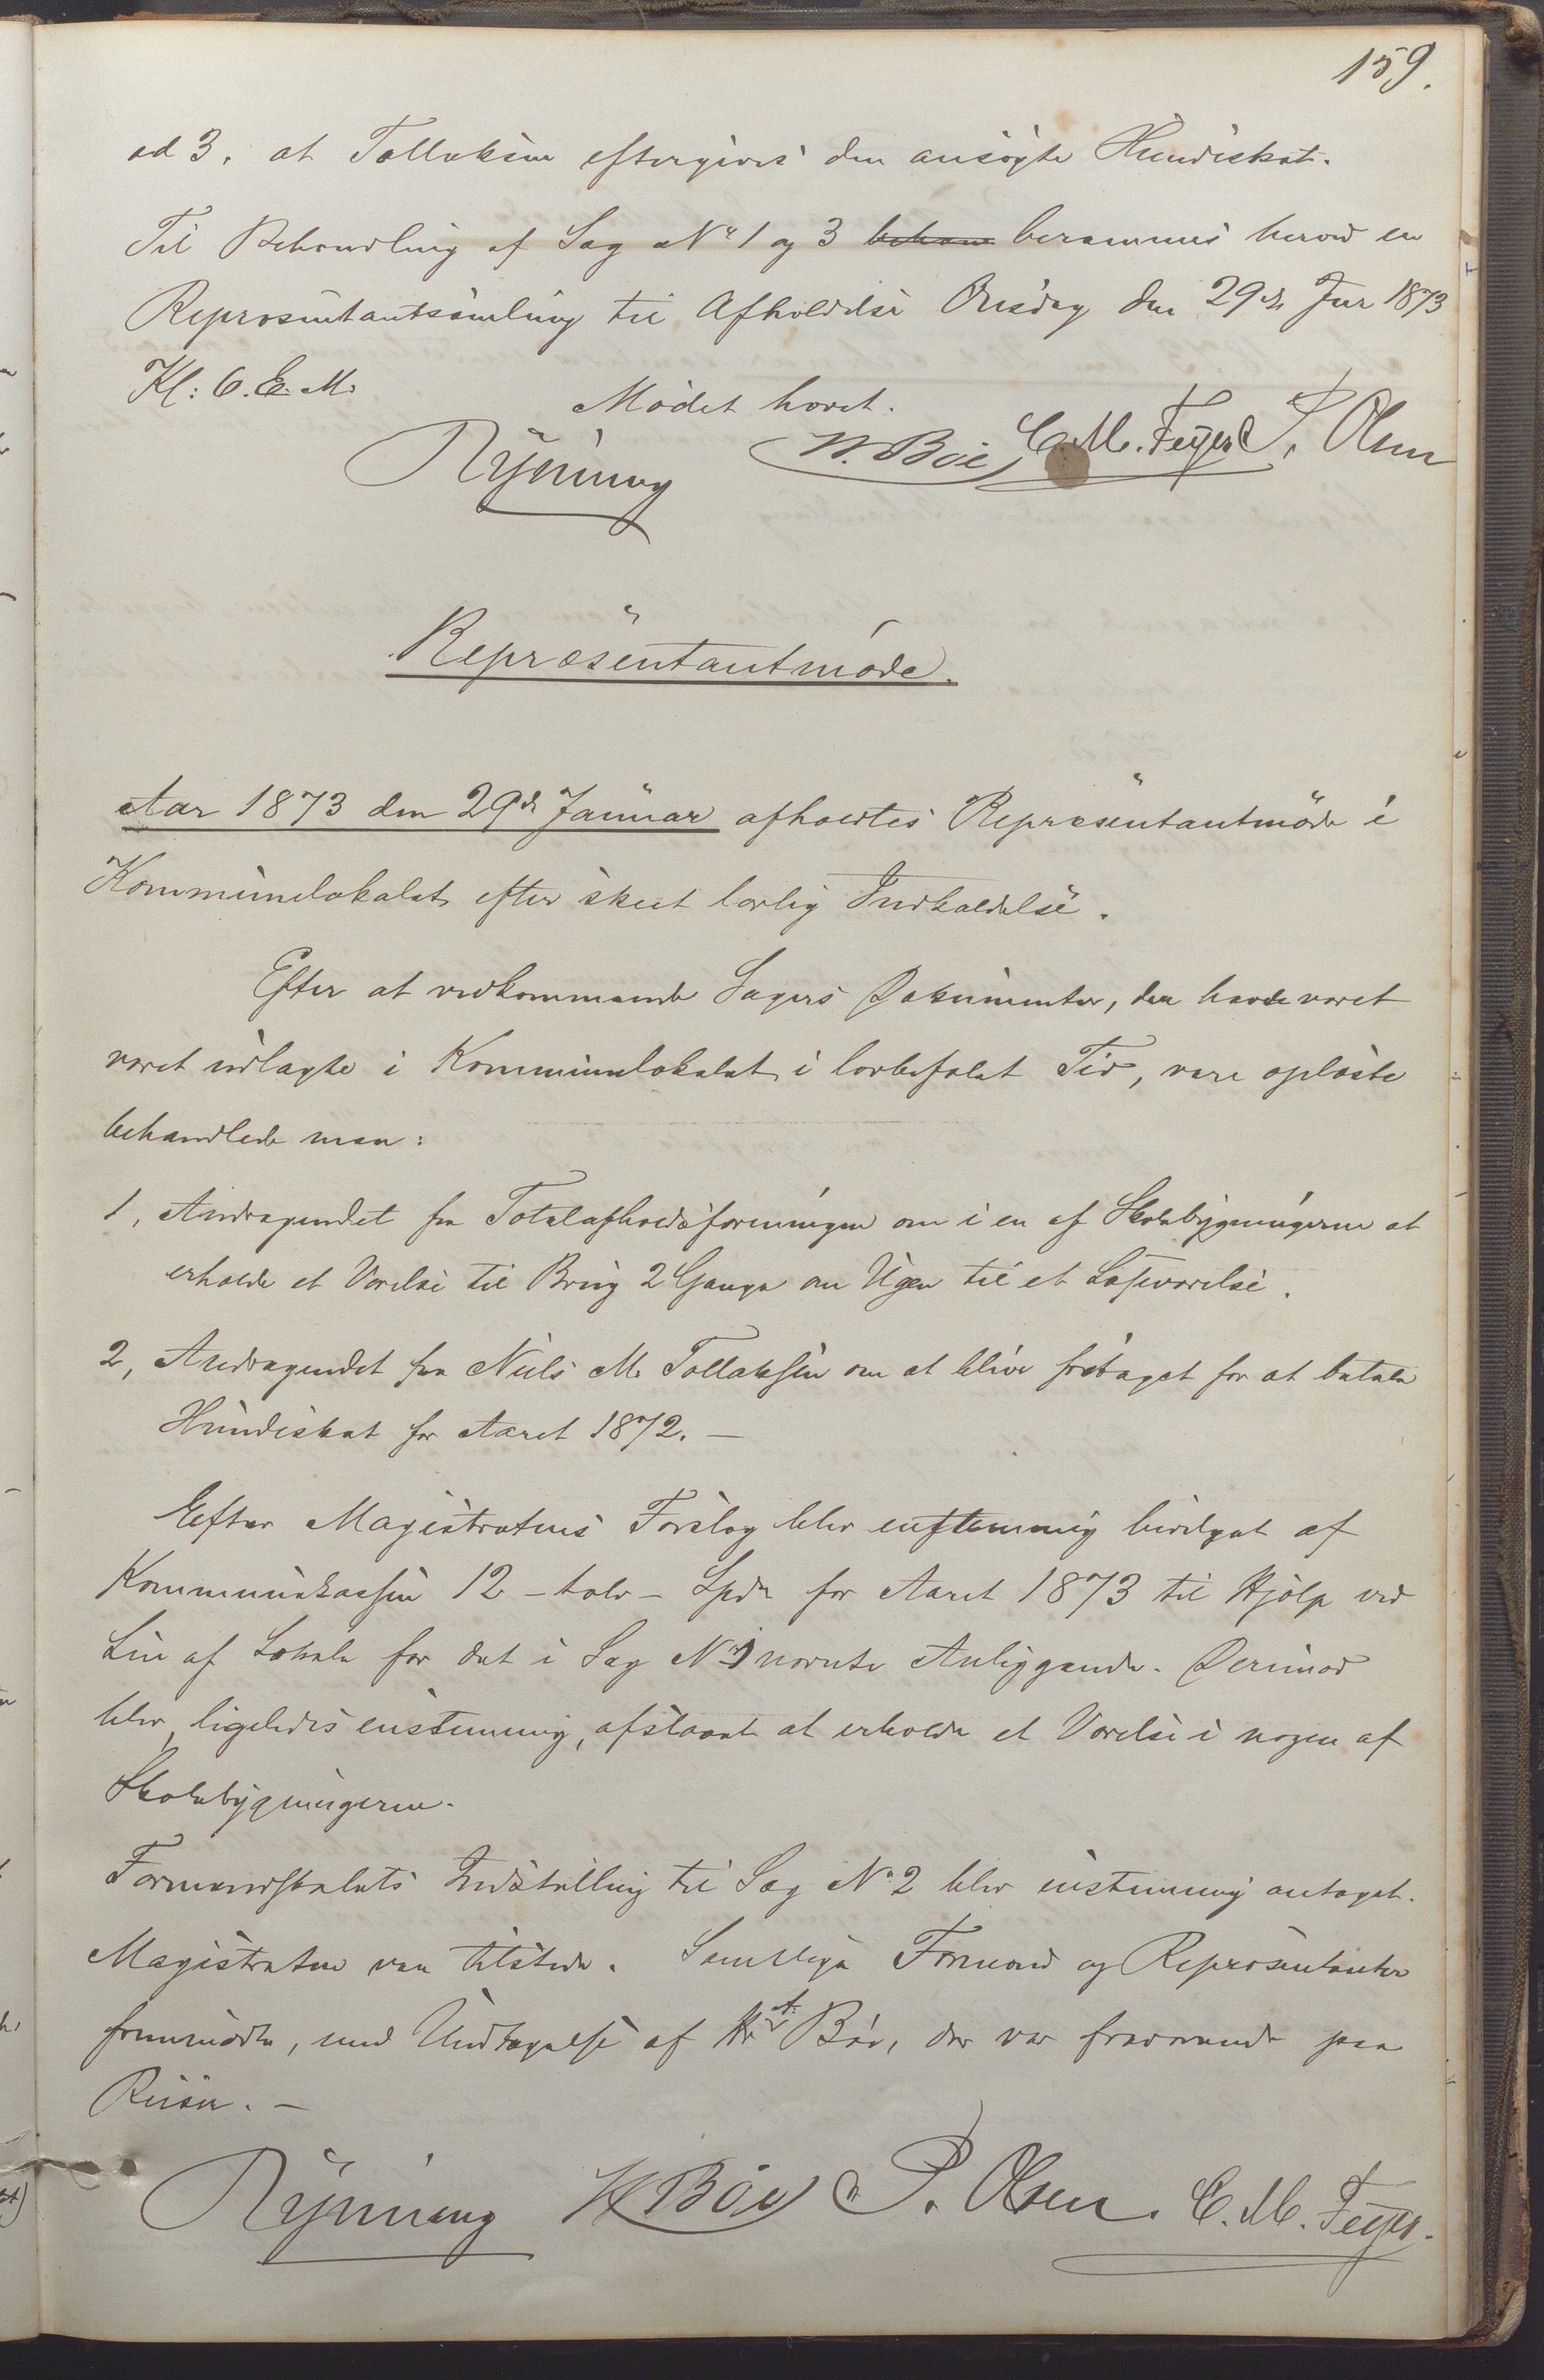 159.
ad 3, at Tollaksen eftergives den ansøgte Hundeskat.
Til Behandling af Sag No 1 og 3 behan berammes herved en
Repræsentantsamling til Afholdelse Onsdag den 29de Jnr 1873
Kl: 6. E. M.
Mødet hævet.
Rÿnning W. Böe C. M. Feyer P. Olsen
Repræsentantmøde.
Aar 1873 den 29de Januar afholdtes Repræsentantmøde i
Kommunelokalet efter skeet lovlig Indkaldelse.
Efter at vedkommende Sagers Dokumenter, der havde været
været udlagte i Kommunelokalet i lovbefalet Tid, vare oplæste
behandlede man:
1, Andragendet fra Totalafholdsforeningen om i en af Skolebygningerne at
erholde et Værelse til Brug 2 Gange om Ugen til et Læseværelse.
2, Andragendet fra Niels M. Tollaksen om at blive fritaget for at betale
Hundeskat for Aaret 1872. —
Efter Magistratens Forslag blev enstemmig bevilget af
Kommunekassen 12 - tolv - Spdr for Aaret 1873 til Hjælp ved
Leie af Lokale for det i Sag No 1 nævnte Anliggende. Derimod
blev, ligeledes enstemmig, afslaaet at erholde et Værelse i nogen af
Skolebygningerne.
Formandskabets Indstilling til Sag No 2 blev enstemmig antaget.
Magistraten var tilstede. Samtlige Formænd og Repræsentanter
fremmødte, med Undtagelse af Hr A. Böe, der var fraværende paa
Reiser. —
Rÿnning W Böe P. Olsen. C. M. Feyer.